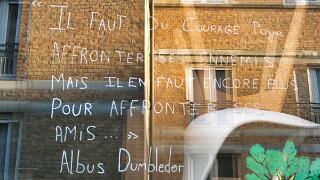 « Il faut du courage pour
affronter ses ennemis
Mais il en faut encore plus
Pour affronter ses
amis... »
Albus Dumbledor